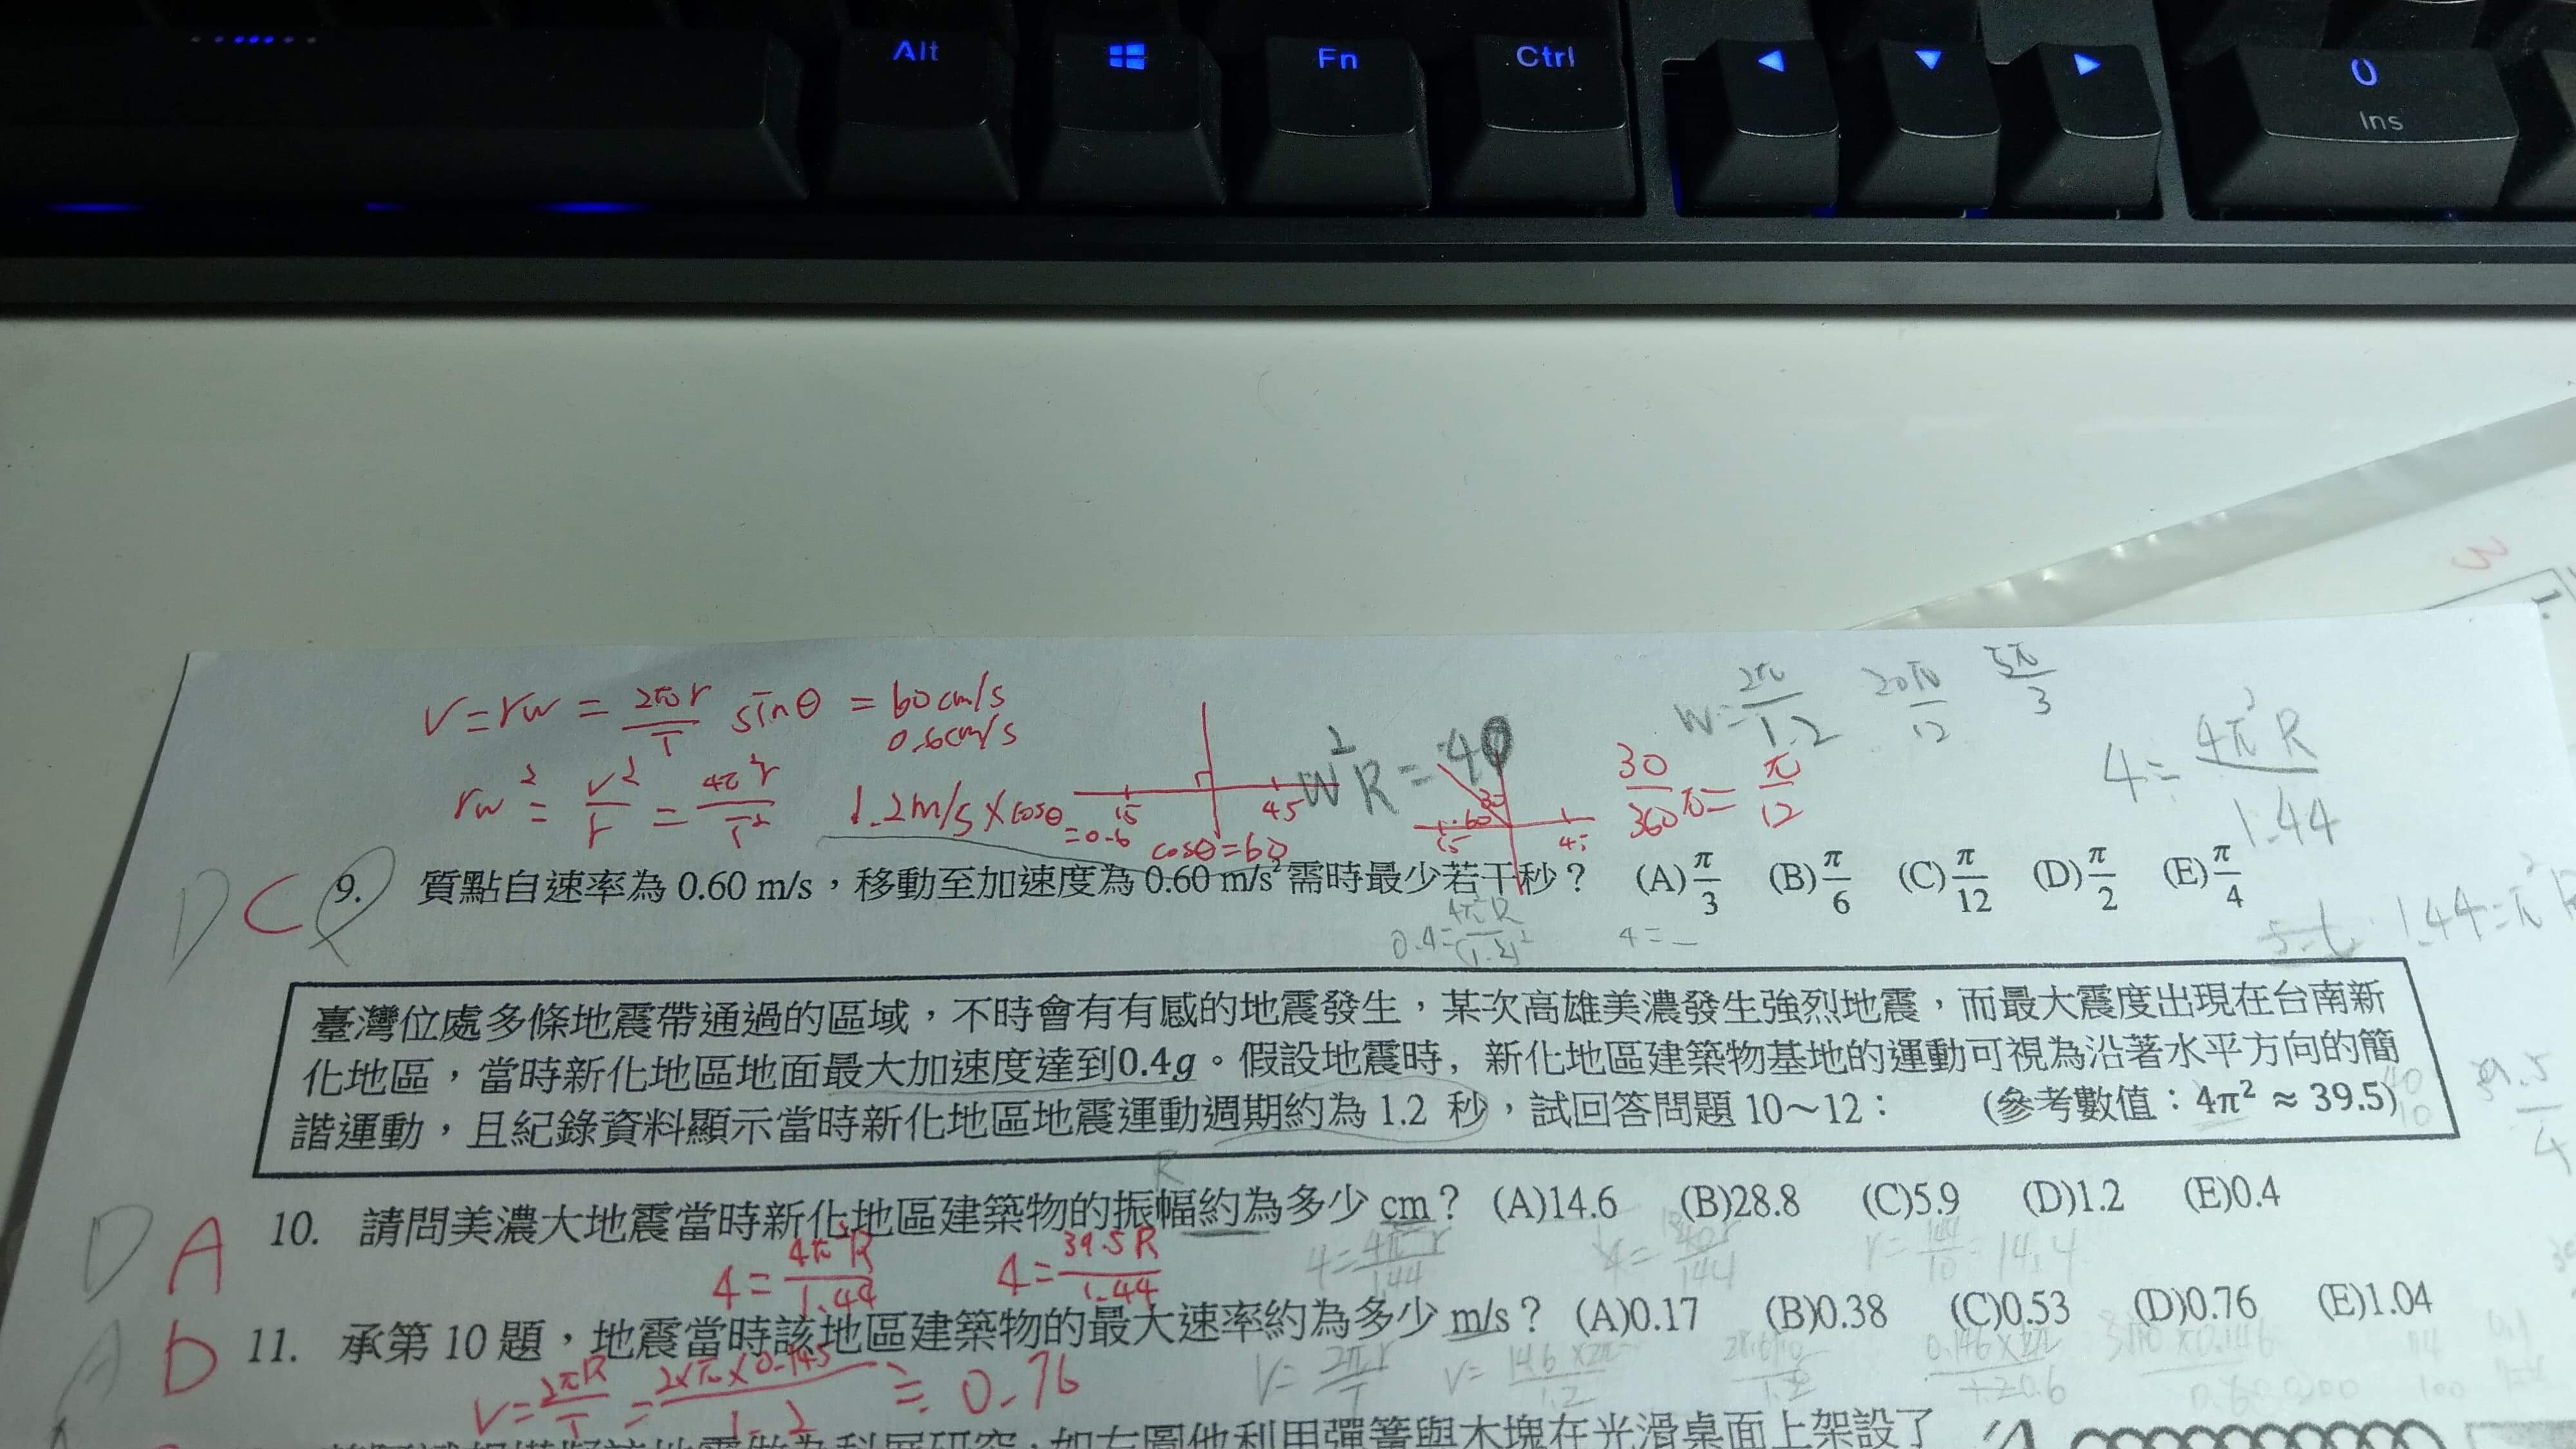 Alt
Fn
Ctrl
0
Ins
V=rw = 2πr/T sinθ = 60cm/s
0.6cm/s
rw² = v²/r = 4π²r/T²
1.2m/s×cosθ
=0.6
cosθ=60
15
45
w²R=40
30/360 π = π/12
w=2π/1.2
20π/12
5π/3
4=4π²R/1.44
D C 9. 質點自速率為 0.60 m/s,移動至加速度為 0.60 m/s²需時最少若干秒? (A)π/3 (B)π/6 (C)π/12 (D)π/2 (E)π/4
0.4=4π²R/(1.2)²
4=
1.44=π²R
臺灣位處多條地震帶通過的區域,不時會有有感的地震發生,某次高雄美濃發生強烈地震,而最大震度出現在台南新
化地區,當時新化地區地面最大加速度達到0.4g。假設地震時,新化地區建築物基地的運動可視為沿著水平方向的簡
諧運動,且紀錄資料顯示當時新化地區地震運動週期約為 1.2 秒,試回答問題 10～12: (參考數值:4π² ≈ 39.5)
39.5
D A 10. 請問美濃大地震當時新化地區建築物的振幅約為多少 cm? (A)14.6 (B)28.8 (C)5.9 (D)1.2 (E)0.4
R
4=4π²R/1.44
4=39.5R/1.44
r=144/10=14.4
A D 11. 承第 10 題,地震當時該地區建築物的最大速率約為多少 m/s? (A)0.17 (B)0.38 (C)0.53 (D)0.76 (E)1.04
V=2πR/T = 2×π×0.145/1.2 ≒ 0.76
V=2πr/T
V=14.6×2π/1.2
利用彈簧與木塊在光滑桌面上架設了